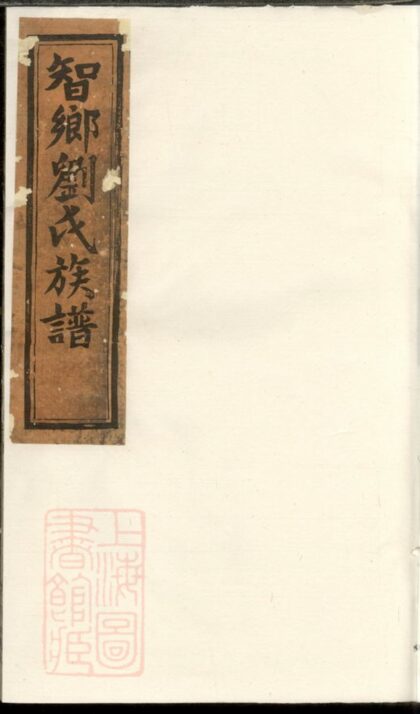 智鄉劉氏族譜
上海圖
書館臧